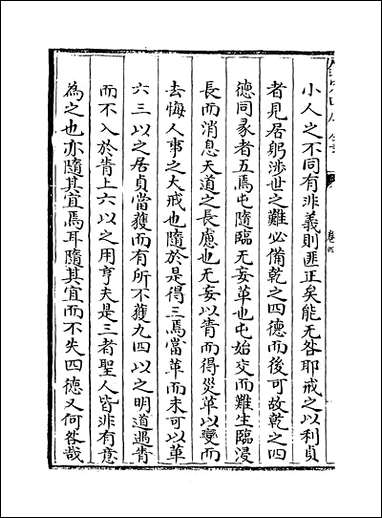 小人之不同有非義則匪正矣能无咎耶戒之以利貞
者見居躬渉世之難必備乾之四德而後可故乾之四
德同彖者五焉屯隨臨无妄革也屯始交而難生臨浸
長而消息天道之長慮也无妄以眚而得災革以變而
去悔人事之大戒也隨於是得三焉當革而未可以革
六三以之居貞當獲而有所不獲九四以之明道遇眚
而不入於眚上六以之用亨夫是三者聖人皆非有意
為之也亦隨其宜焉耳隨其宜而不失四德又何咎哉